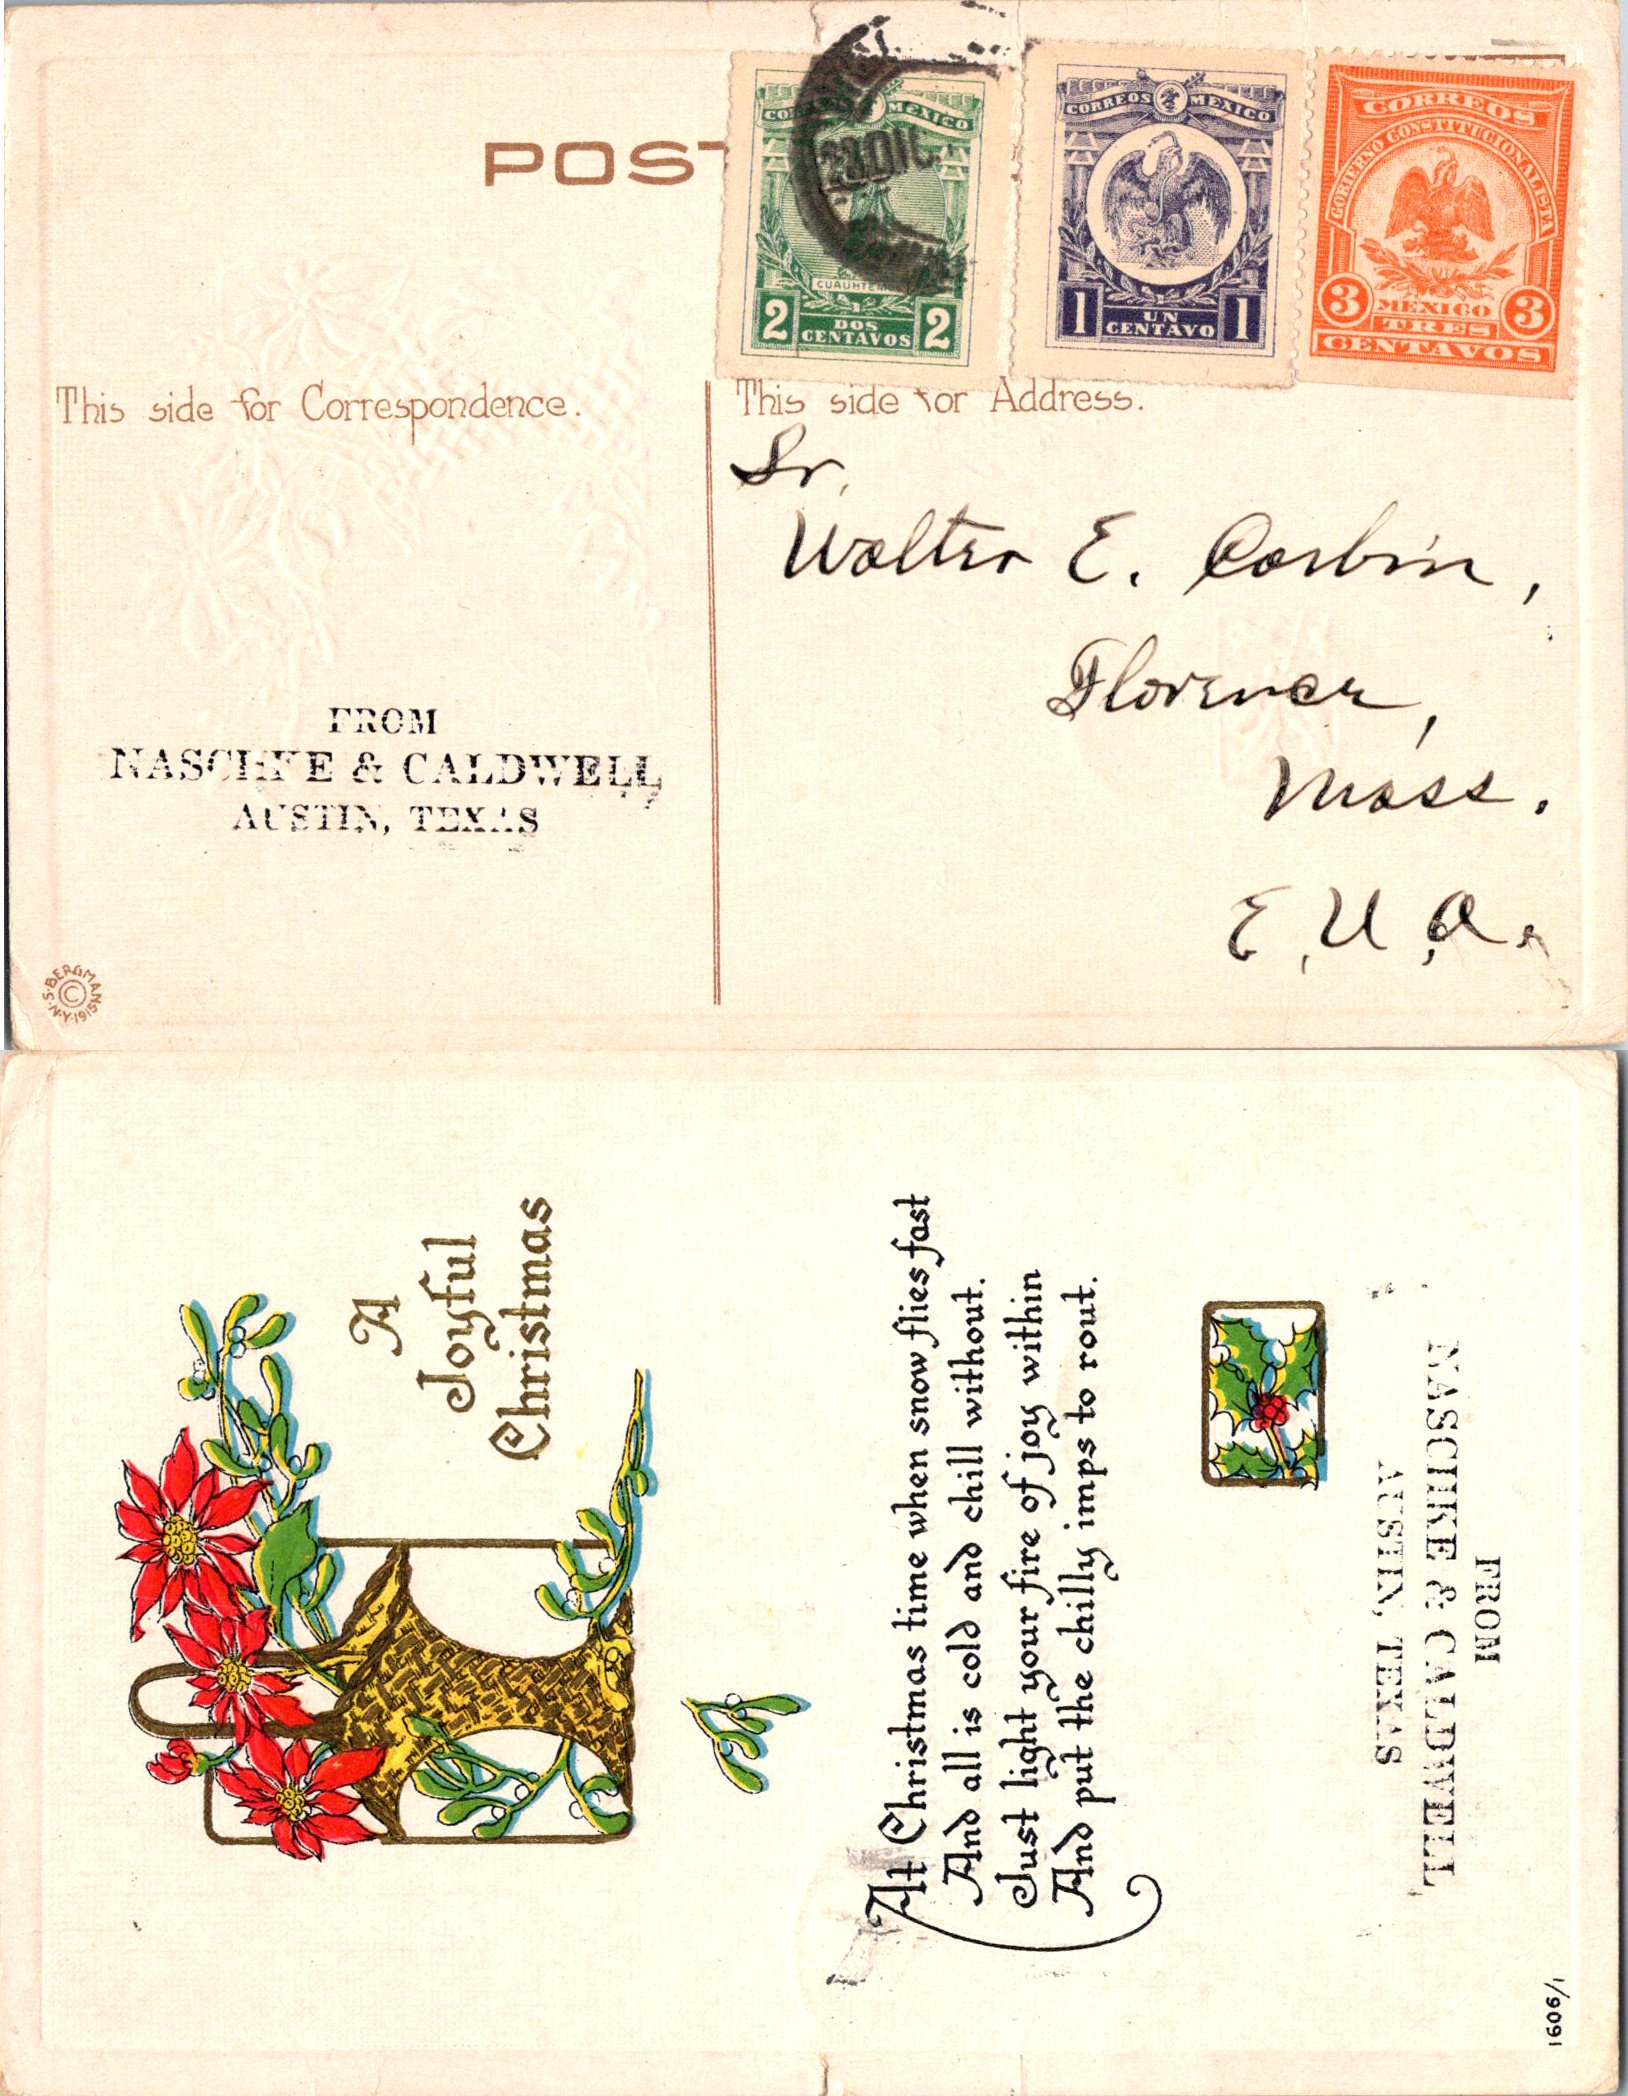 POST
CORREOS MEXICO
23.DIC.
CUAUHTEMOC
2 DOS CENTAVOS 2
CORREOS MEXICO
1 UN CENTAVO 1
CORREOS
GOBIERNO CONSTITUCIONALISTA
3 MEXICO 3
TRES
CENTAVOS
This side for Correspondence.
This side for Address.
Sr.
Walter E. Corbin,
Florence,
Mass.
E.U.A.
FROM
NASCHKE & CALDWELL
AUSTIN, TEXAS
© S. BERGMAN N.Y. 1915
A
Joyful
Christmas
At Christmas time when snow flies fast
And all is cold and chill without.
Just light your fire of joy within
And put the chilly imps to rout.
FROM
NASCHKE & CALDWELL
AUSTIN, TEXAS
1606/1